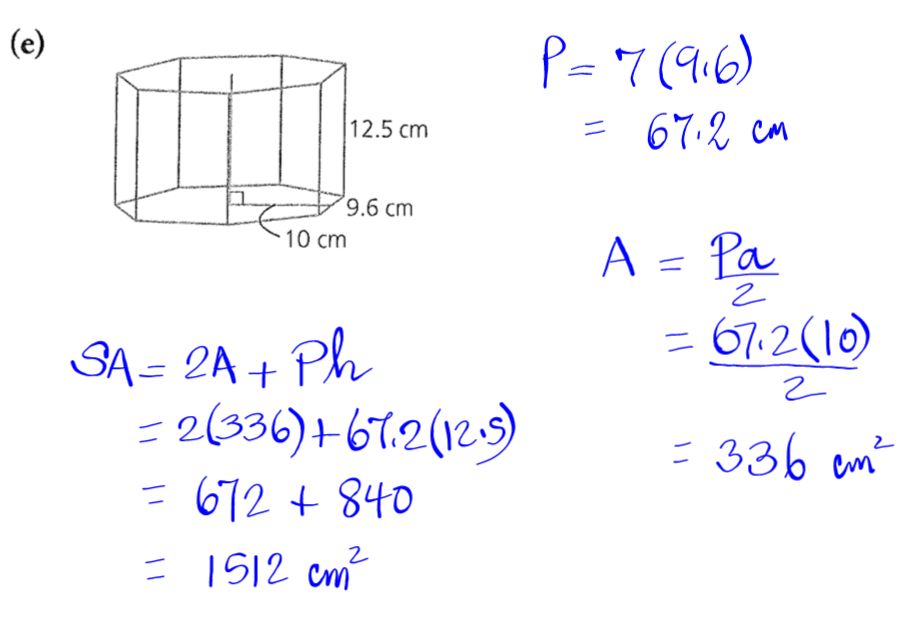 (e)
12.5 cm
9.6 cm
10 cm
P = 7(9.6)
= 67.2 cm
A = Pa/2
= 67.2(10)/2
= 336 cm²
SA = 2A + Ph
= 2(336) + 67.2(12.5)
= 672 + 840
= 1512 cm²